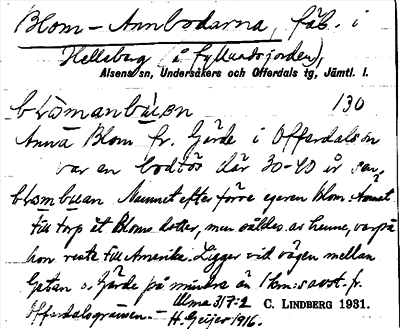 Blom-Annbodarna, fäb. i
Helleberg (å fyllnadsjorden),
Alsens sn, Undersåkers och Offerdals tg, Jämtl. l.
130
Anna Blom fr. Gärde i Offerdals sn
var en bodtös där 30-40 år sen,
Minnet efter förre egaren Blom. Annat
till torp åt Bloms dotter, men såldes av henne, varpå
hon reste till Amerika. Ligger vid vägen mellan
Gärde på mindre än 1 km:s avst. fr.
Offerdalsgränsen. - Alma 317:2
H. Geijer 1916.
C. LINDBERG 1931.